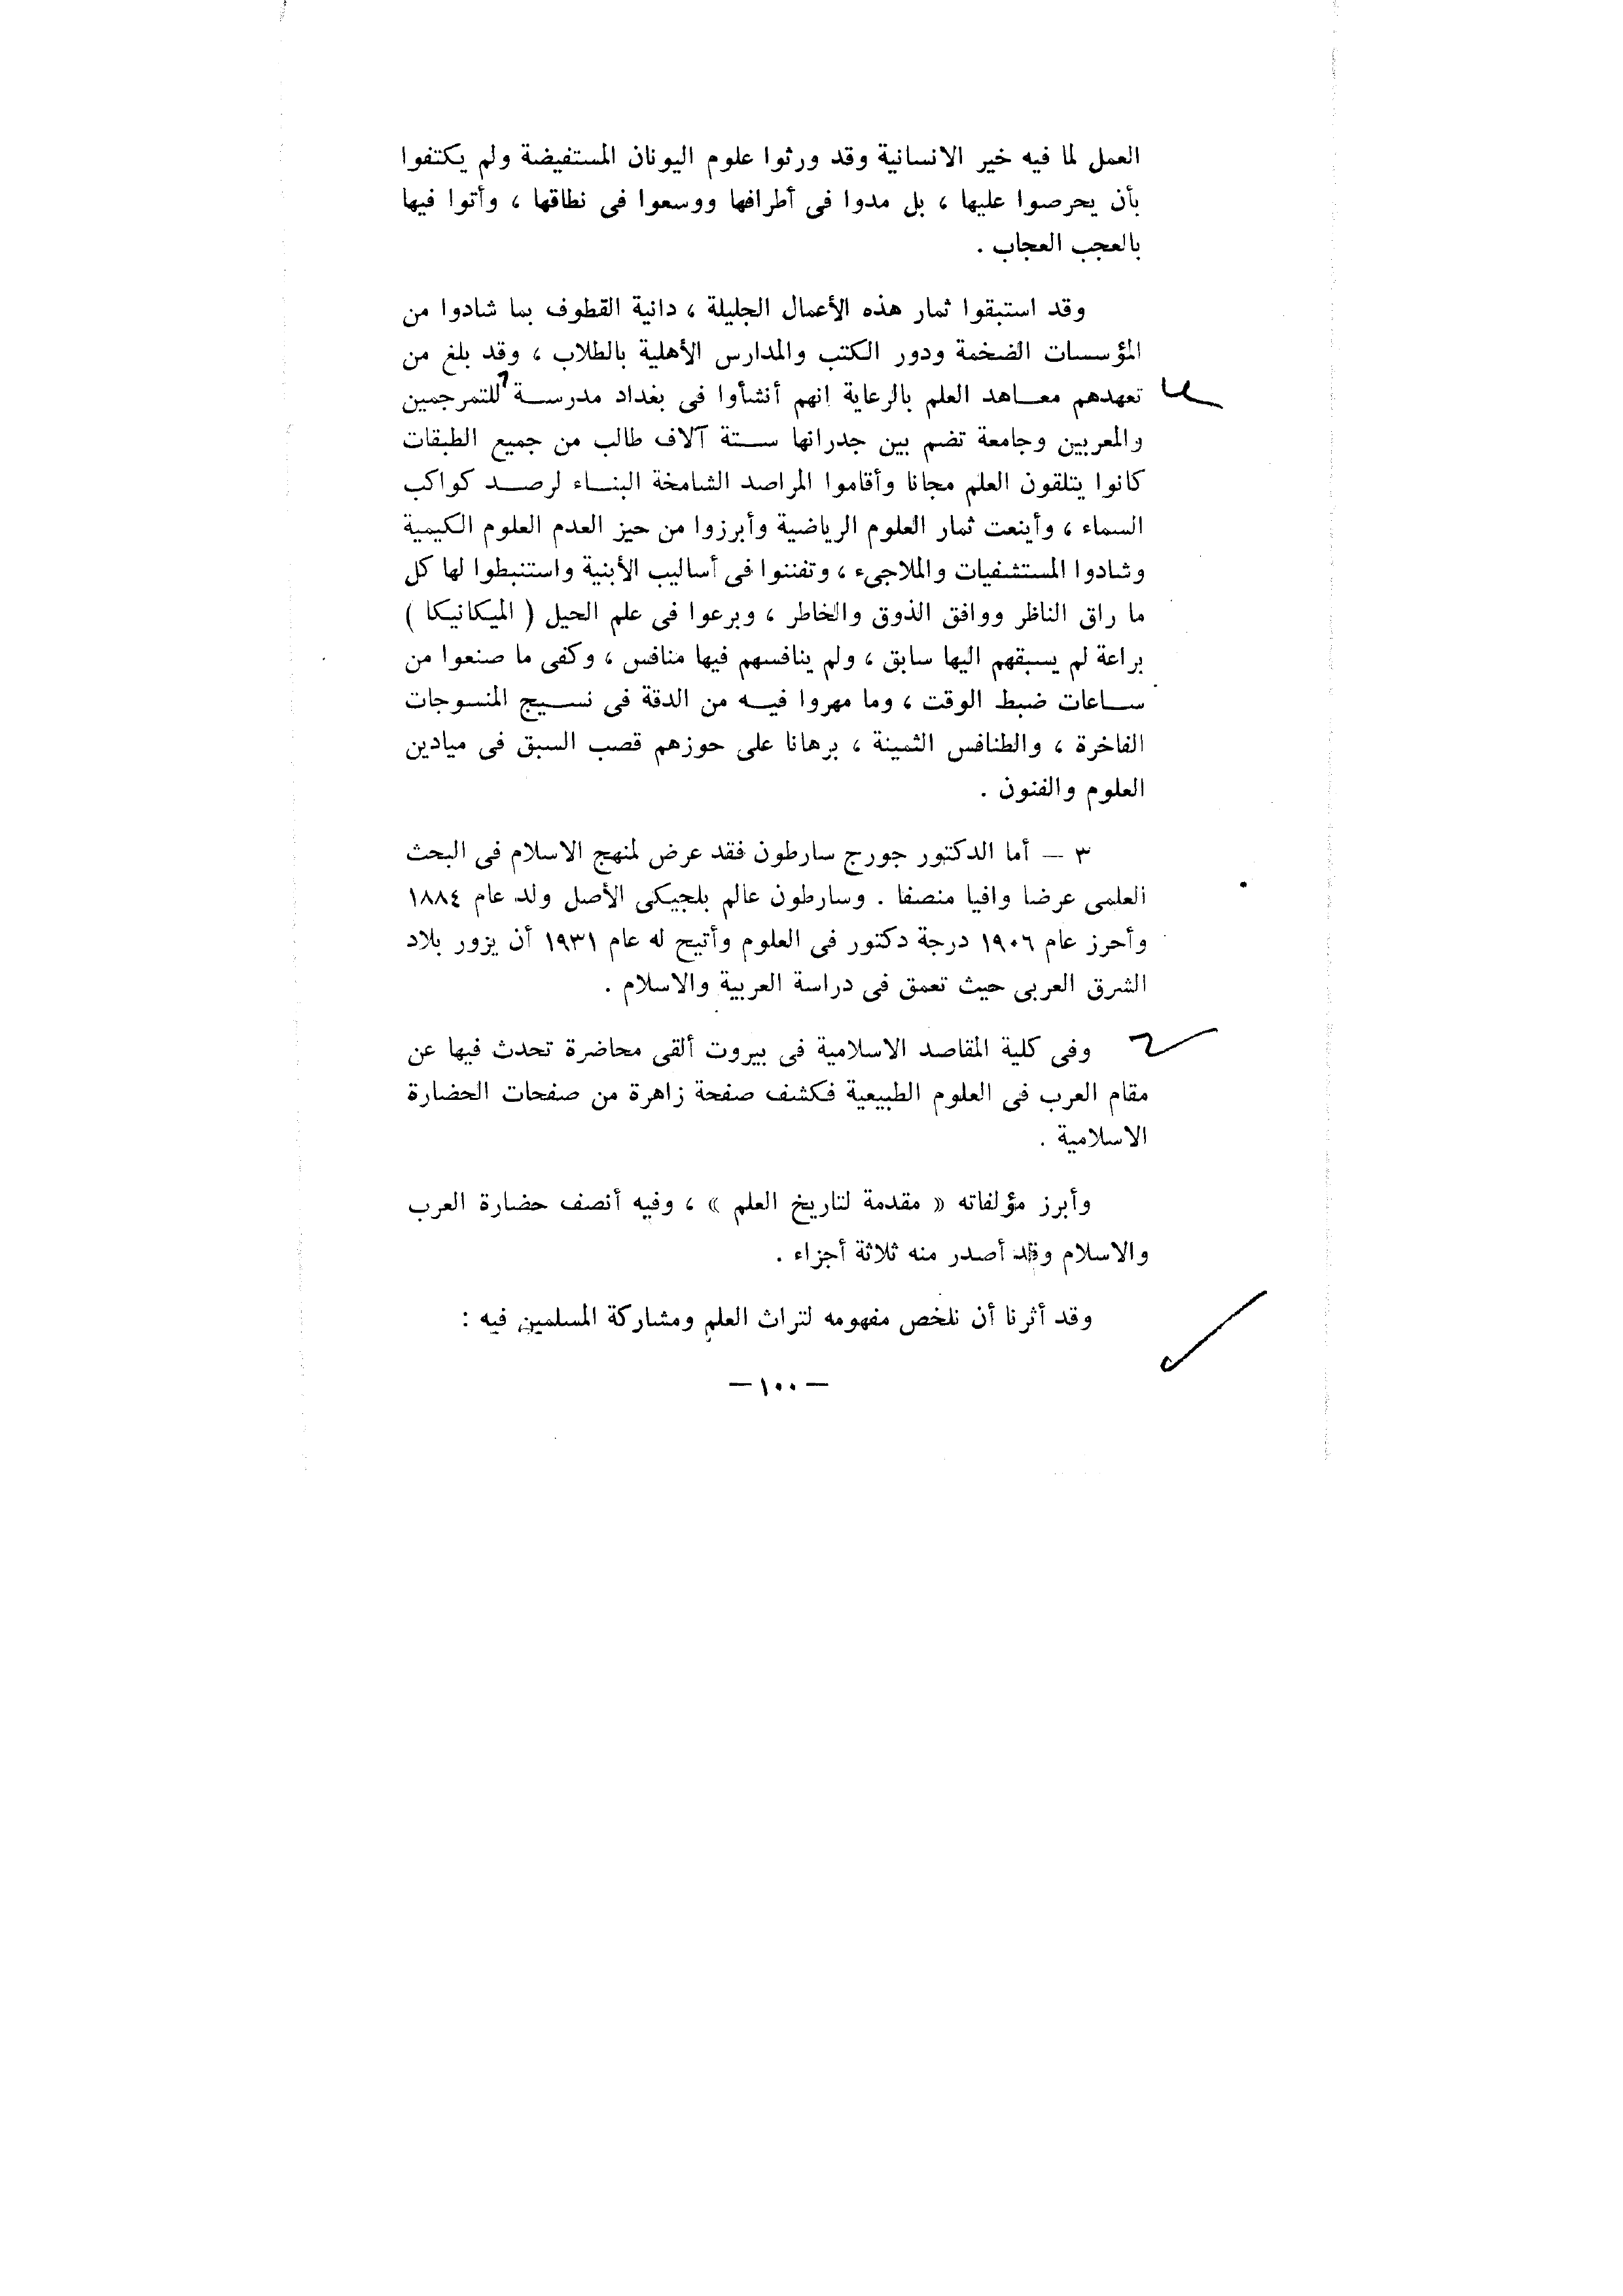 العمل لما فيه خير الانسانية وقد ورثوا علوم اليونان المستفيضة ولم يكتفوا
بأن يحرصوا عليها ، بل مدوا فى أطرافها ووسعوا فى نطاقها ، وأتوا فيها
بالعجب العجاب .
وقد استبقوا ثمار هذه الأعمال الجليلة ، دانية القطوف بما شادوا من
المؤسسات الضخمة ودور الكتب والمدارس الأهلية بالطلاب ، وقد بلغ من
تعهدهم معاهد العلم بالرعاية انهم أنشأوا فى بغداد مدرسة للتمرجمين
والمعربين وجامعة تضم بين جدرانها ستة آلاف طالب من جميع الطبقات
كانوا يتلقون العلم مجانا وأقاموا المراصد الشامخة البناء لرصد كواكب
السماء ، وأينعت ثمار العلوم الرياضية وأبرزوا من حيز العدم العلوم الكيمية
وشادوا المستشفيات والملاجىء ، وتفننوا فى أساليب الأبنية واستنبطوا لها كل
ما راق الناظر ووافق الذوق والخاطر ، وبرعوا فى علم الحيل ( الميكانيكا )
براعة لم يسبقهم اليها سابق ، ولم ينافسهم فيها منافس ، وكفى ما صنعوا من
ساعات ضبط الوقت ، وما مهروا فيه من الدقة فى نسيج المنسوجات
الفاخرة ، والطنافس الثمينة ، برهانا على حوزهم قصب السبق فى ميادين
العلوم والفنون .
٣ — أما الدكتور جورج سارطون فقد عرض لمنهج الاسلام فى البحث
العلمى عرضا وافيا منصفا . وسارطون عالم بلجيكى الأصل ولد عام ١٨٨٤
وأحرز عام ١٩٠٦ درجة دكتور فى العلوم وأتيح له عام ١٩٣١ أن يزور بلاد
الشرق العربى حيث تعمق فى دراسة العربية والاسلام .
وفى كلية المقاصد الاسلامية فى بيروت ألقى محاضرة تحدث فيها عن
مقام العرب فى العلوم الطبيعية فكشف صفحة زاهرة من صفحات الحضارة
الاسلامية .
وأبرز مؤلفاته « مقدمة لتاريخ العلم » ، وفيه أنصف حضارة العرب
والاسلام وقد أصدر منه ثلاثة أجزاء .
وقد أثرنا أن نلخص مفهومه لتراث العلم ومشاركة المسلمين فيه :
— ١٠٠ —